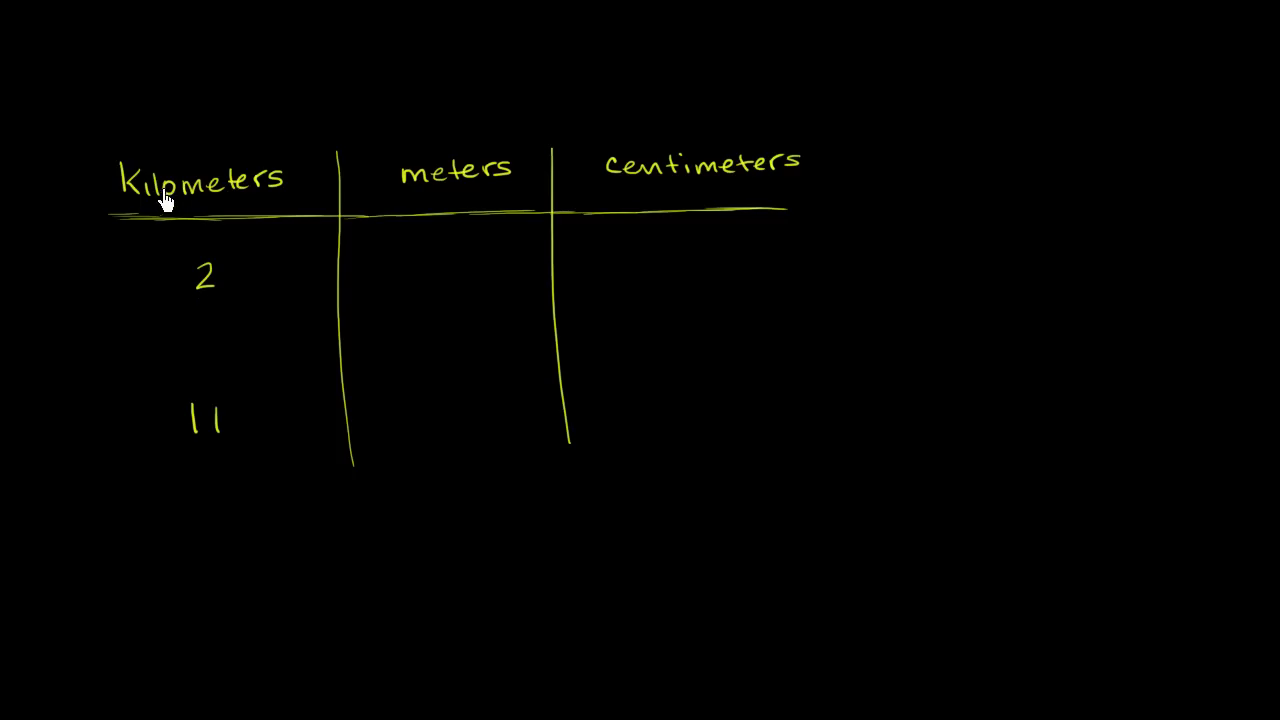 Kilometers meters centimeters
2
11